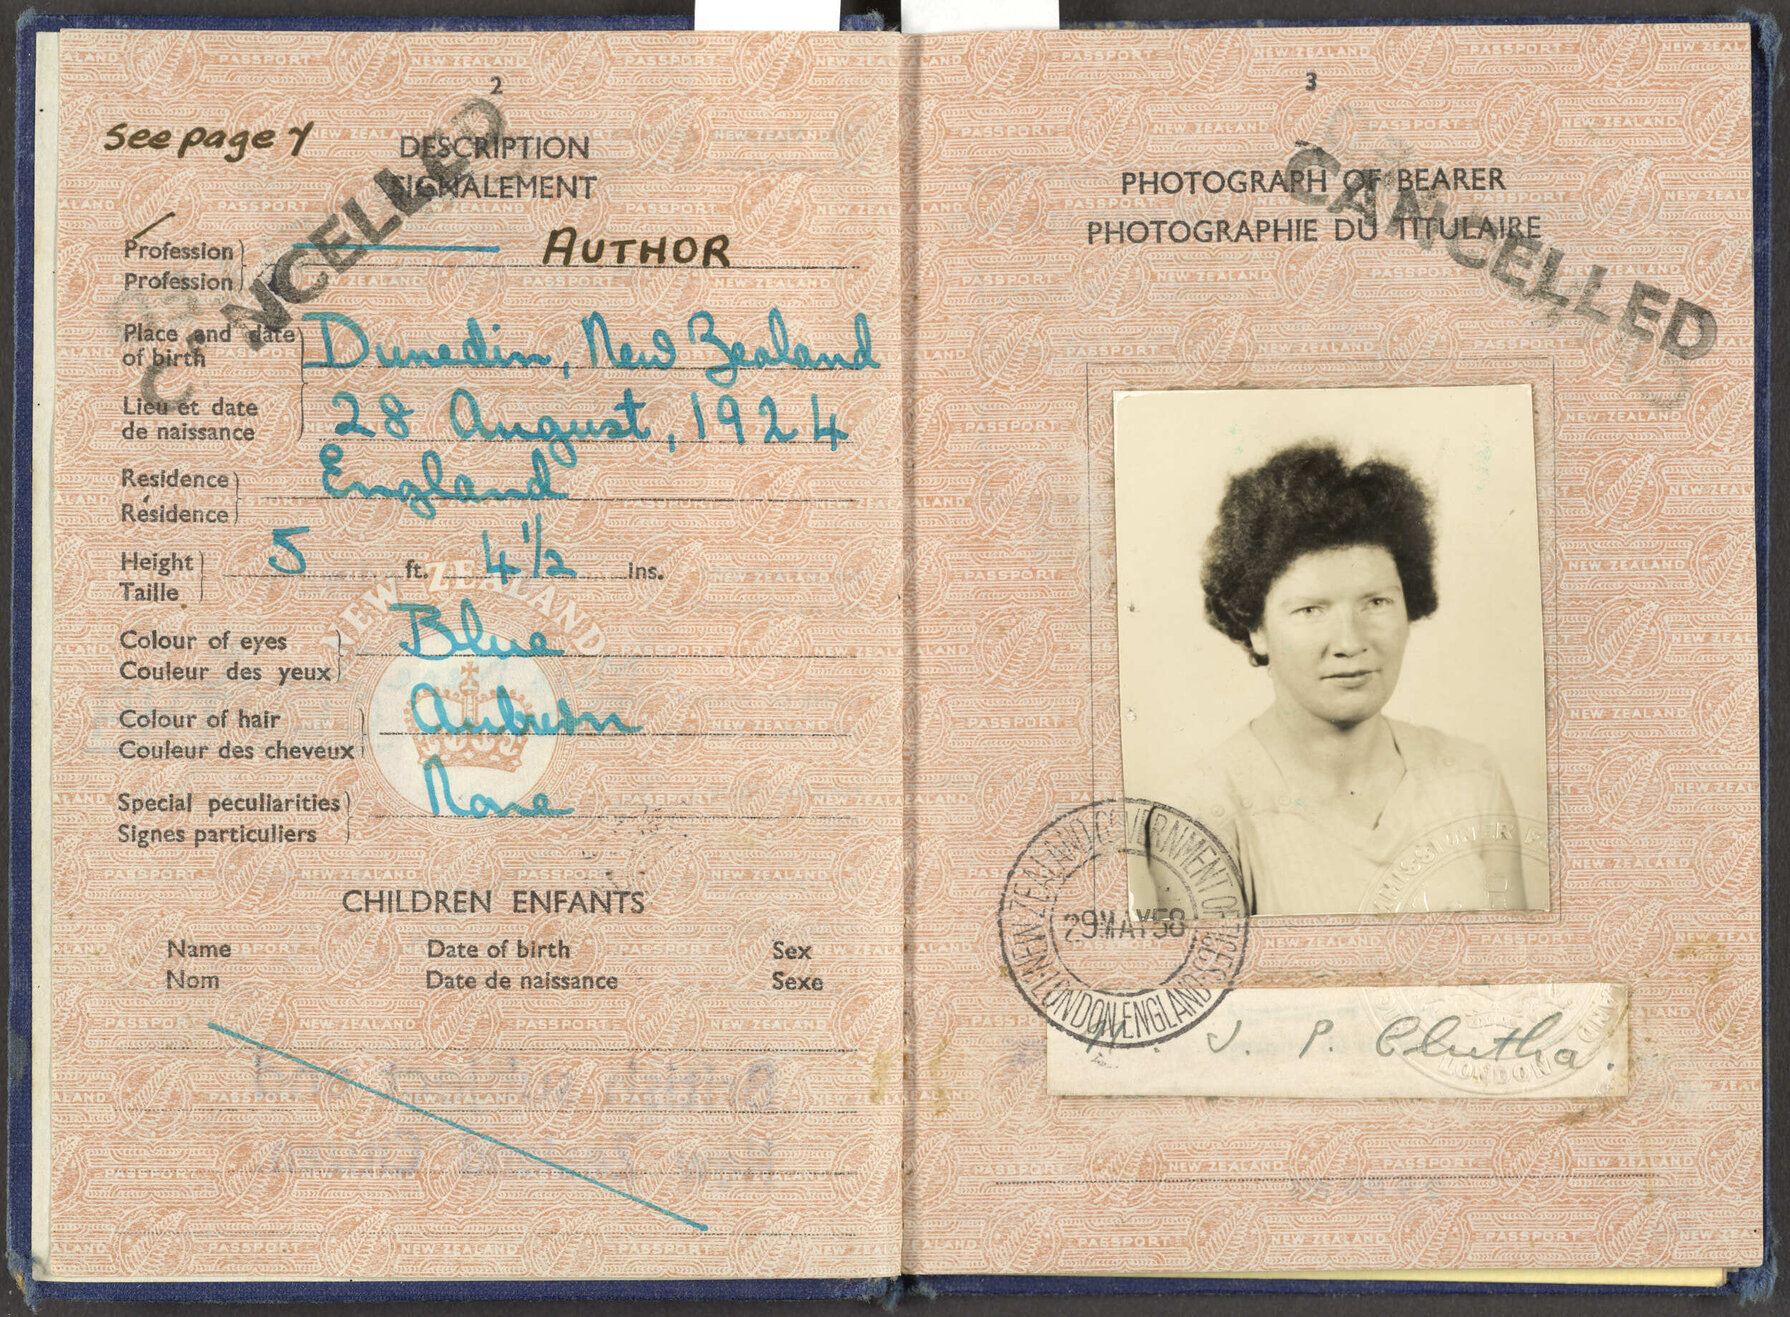 2
See page 7
DESCRIPTION
SIGNALEMENT
CANCELLED
Profession
Profession
AUTHOR
Place and date
of birth
Dunedin, New Zealand
Lieu et date
de naissance
28 August, 1924
Residence
Résidence
England
Height
Taille
5 ft. 4½ ins.
NEW ZEALAND
Colour of eyes
Couleur des yeux
Blue
Colour of hair
Couleur des cheveux
Auburn
Special peculiarities
Signes particuliers
None
CHILDREN ENFANTS
Name Date of birth Sex
Nom Date de naissance Sexe
3
PHOTOGRAPH OF BEARER
PHOTOGRAPHIE DU TITULAIRE
CANCELLED
NEW ZEALAND GOVERNMENT OFFICES
29 MAY 58
LONDON ENGLAND
N. J. P. Clutha.
LONDON